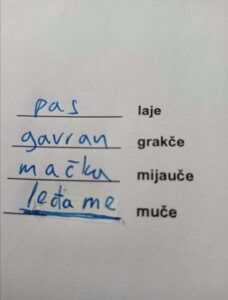 pas laje
gavran grakče
mačka mijauče
leđa me muče